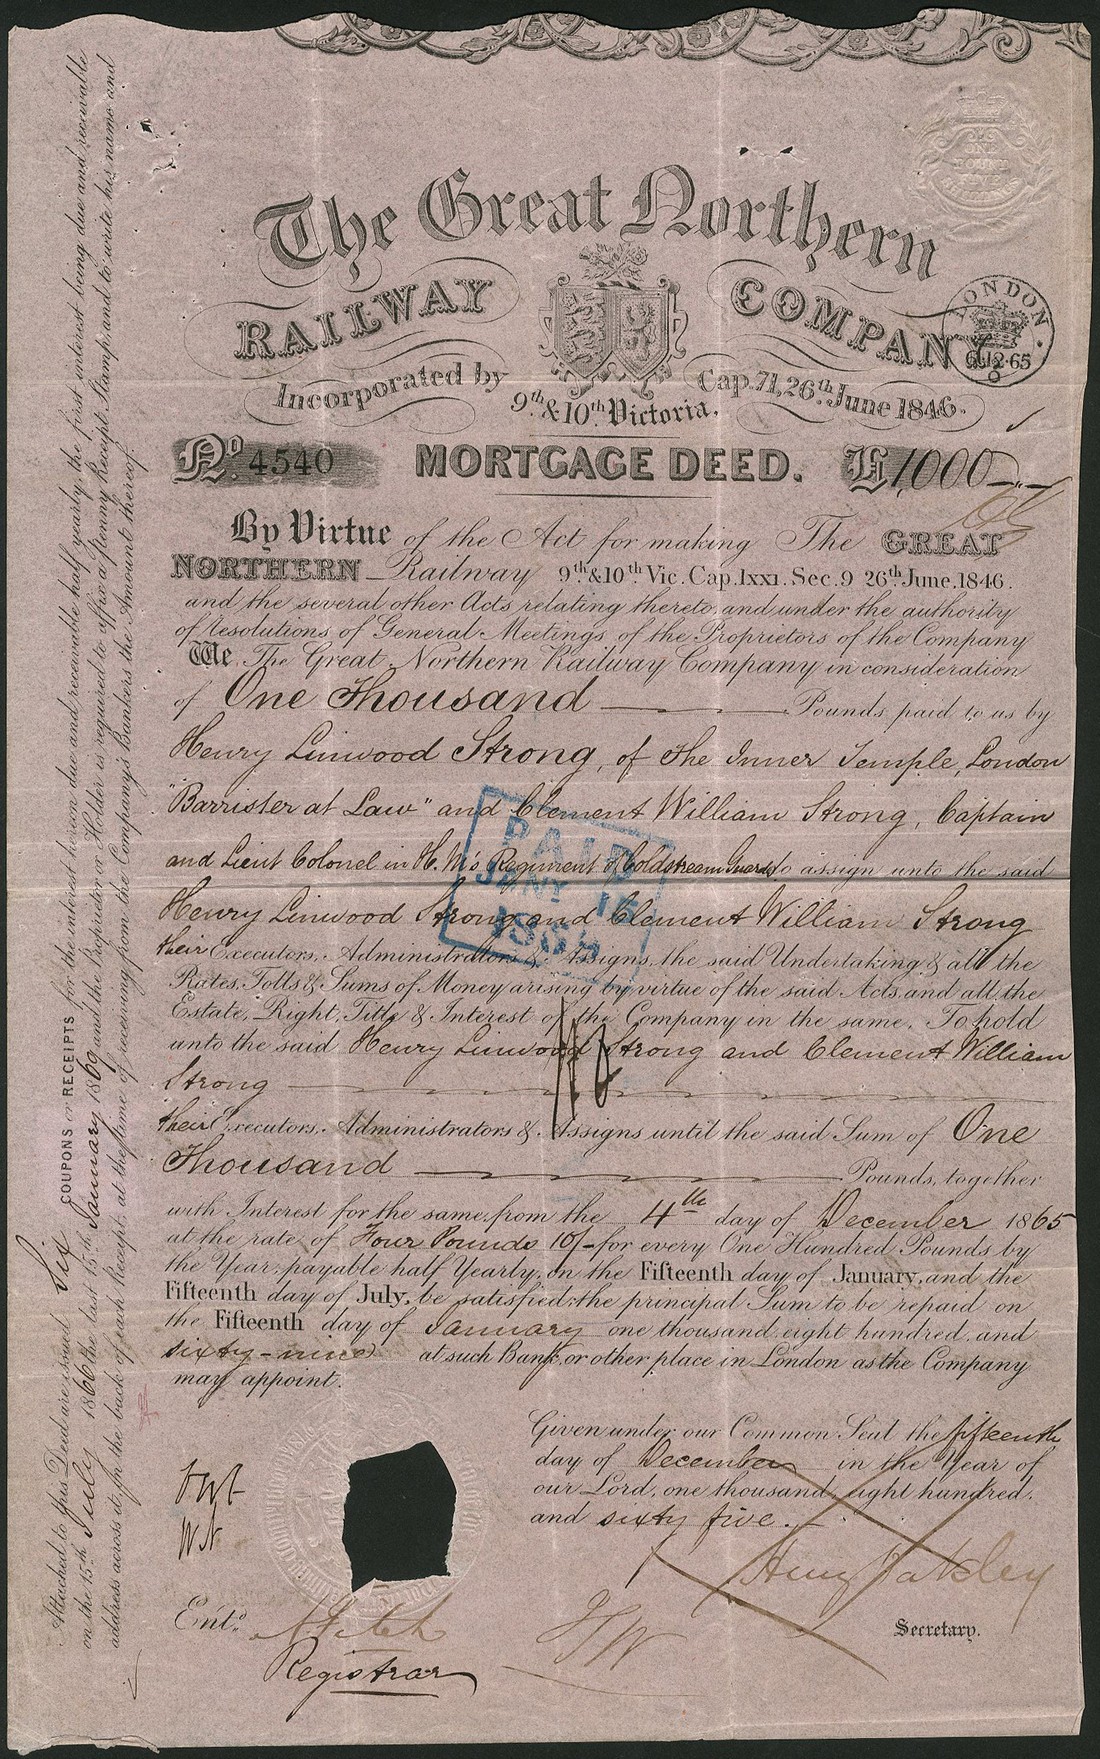 ONE
POUND
FIVE
SHILLINGS
The Great Northern
RAILWAY COMPANY
LONDON
6.12.65
Incorporated by
9th & 10th Victoria,
Cap. 71, 26th June 1846.
No. 4540 MORTGAGE DEED. £1,000
By Virtue of the Act for making The GREAT
NORTHERN Railway 9th & 10th Vic. Cap. lxxi. Sec. 9 26th June, 1846.
and the several other Acts relating thereto, and under the authority
of Resolutions of General Meetings, of the Proprietors of the Company
We, The Great Northern Railway Company in consideration
of One Thousand Pounds, paid to us by
Henry Linwood Strong, of the Inner Temple, London
"Barrister at Law" and Clement William Strong, Captain
and Lieut Colonel in H. M's Regiment of Coldstream Guards do assign unto the said
Henry Linwood Strong and Clement William Strong
their Executors, Administrators & Assigns, the said Undertaking & all the
Rates, Tolls & Sums of Money arising by virtue of the said Acts, and all the
Estate, Right, Title & Interest of the Company in the same, To hold
unto the said Henry Linwood Strong and Clement William
Strong
their Executors, Administrators & Assigns until the said Sum of One
Thousand Pounds, together
with Interest for the same, from the 4th day of December 1865
at the rate of Four Pounds 10/- for every One Hundred Pounds by
the Year, payable half Yearly, on the Fifteenth day of January, and the
Fifteenth day of July, be satisfied; the principal Sum to be repaid on
the Fifteenth day of January one thousand eight hundred, and
sixty-nine at such Bank, or other place in London as the Company
may appoint.
Given under our Common Seal the fifteenth
day of December in the Year of
our Lord, one thousand, eight hundred,
and sixty five.
Henry Oakley
Secretary.
Ent.d
Registrar
PAID
JANY 15
Attached to this Deed are issued Six COUPONS or RECEIPTS for the interest hereon due and receivable half yearly, the first interest being due and receivable
on the 15th July 1866 the last 15th January 1869 and the Proprietor or Holder is required to affix a Penny Receipt Stamp and to write his name and
address across it, on the back of each Receipt, at the time of receiving from the Company's Bankers the Amount thereof.